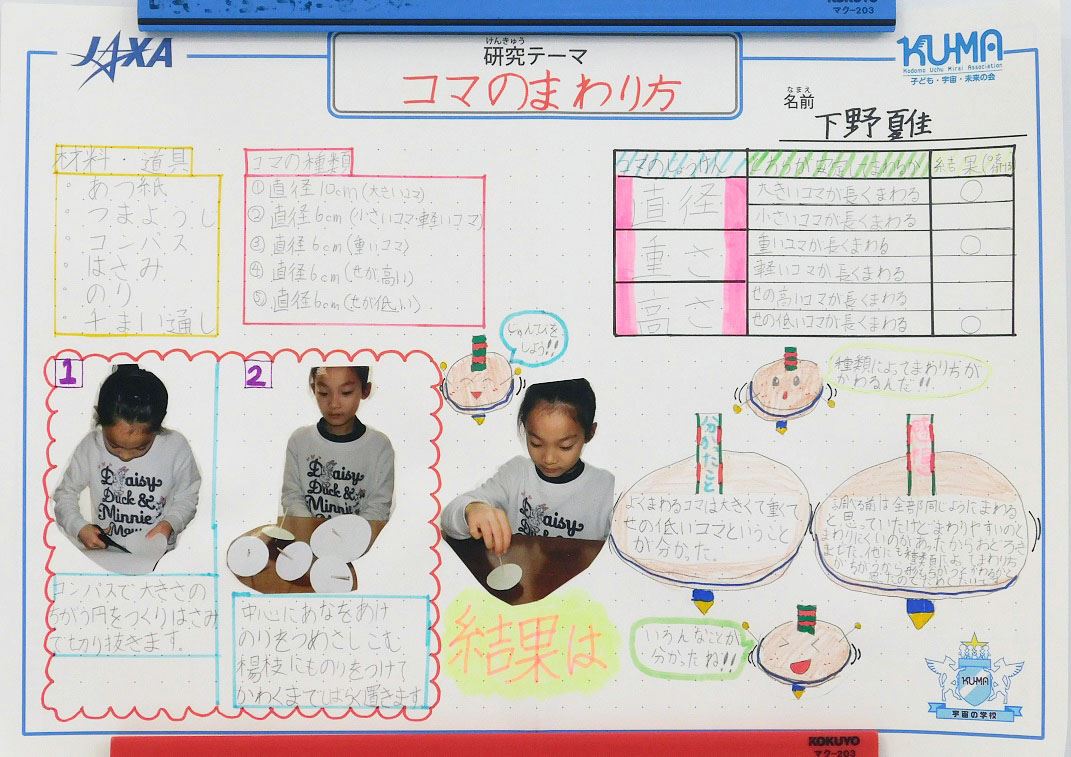 KOKUYO
マク-203
JAXA
けんきゅう
研究テーマ
コマのまわり方
KU-MA
Kodomo Uchu Mirai Association
子ども・宇宙・未来の会
なまえ
名前
下野夏佳
材料・道具
・あつ紙
・つまようじ
・コンパス
・はさみ
・のり
・千まい通し
コマの種類
①直径10cm(大きいコマ)
②直径6cm(小さいコマ・軽いコマ)
③直径6cm(重いコマ)
④直径6cm(せが高い)
⑤直径6cm(せが低い)
コマのじょうけん
結果
直径
大きいコマが長くまわる
○
小さいコマが長くまわる
重さ
重いコマが長くまわる
○
軽いコマが長くまわる
高さ
せの高いコマが長くまわる
せの低いコマが長くまわる
○
じゅんびを
しよう!!
種類によってまわり方が
かわるんだ!!
1
2
コンパスで大きさの
ちがう円をつくりはさみ
で切り抜きます。
中心にあなをあけ
のりをつめさしこむ
楊枝にものりをつけて
かわくまでしばらく置きます
結果は
分かったこと
よくまわるコマは大きくて重くて
せの低いコマということ
が分かった.
感想
調べる前は全部同じようにまわる
と思っていたけどまわりやすいのと
まわりにくいのがあったからおどろき
ました。他にも種類によってまわり方
がちがうなら
いろんなことが
分かったね!!
KU-MA
宇宙の学校
KOKUYO
マク-203